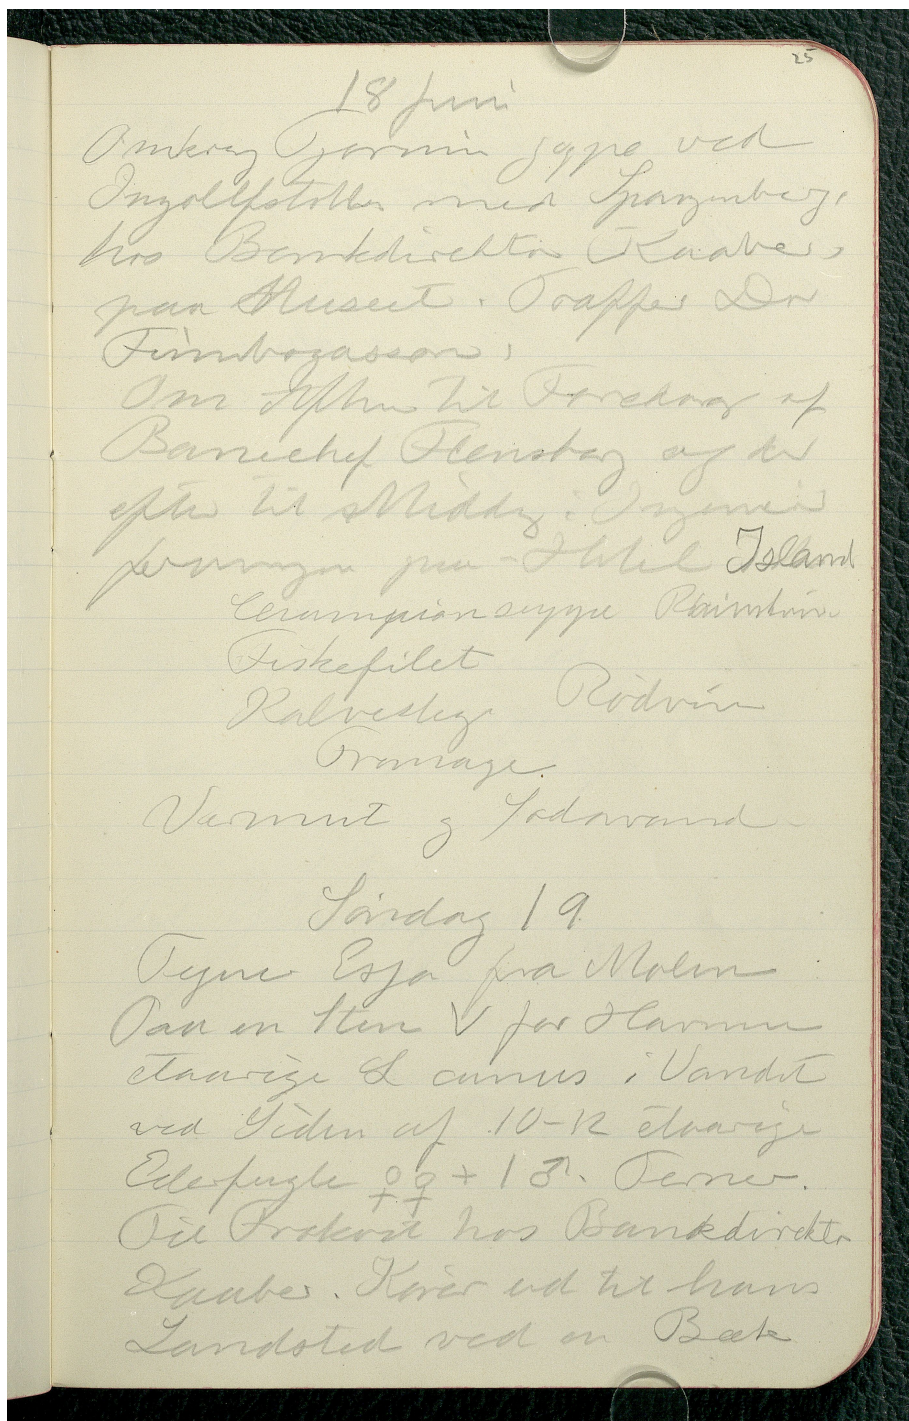 25
18 Juni
Omkring Tjörnin oppe ved
Ingolfstøtten med Spangenberg,
hos Bankdirektør Kaaber,
paa Museet. Traffer Dr
Finnbogasson,
Om Aften til Foredrag af
Banechef Flensborg og der
efter til Middag i Ingeniør
foreningen paa Hotel Island
Champion suppe Rhinskvin
Fiskefilet
Kalvesteg Rødvin
Fromage.
Vermut og Sodavand
Søndag 19
Tegner Esja fra Molen
Paa en Sten V for Havnen
etaarige L canus i Vandet
ved Siden af 10-12 etaarige
Ederfugle ♀♀ + 1 ♂. Terner.
Til Frokost hos Bankdirektør
Kaaber. Kører ud til hans
Landsted ved en Bæk